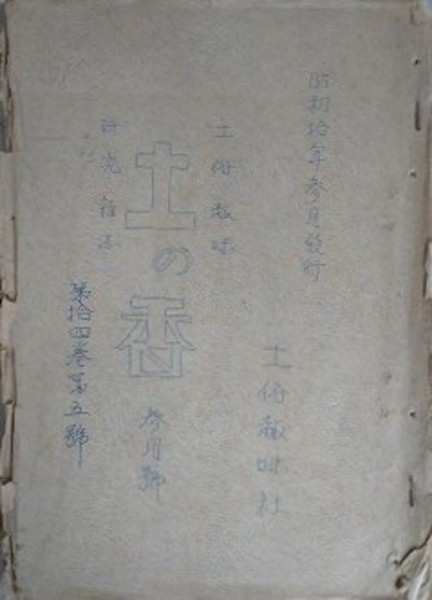 昭和拾年参月發行
土俗趣味
研究雜誌
土の香
参月號
第拾四巻第五號
土俗趣味社